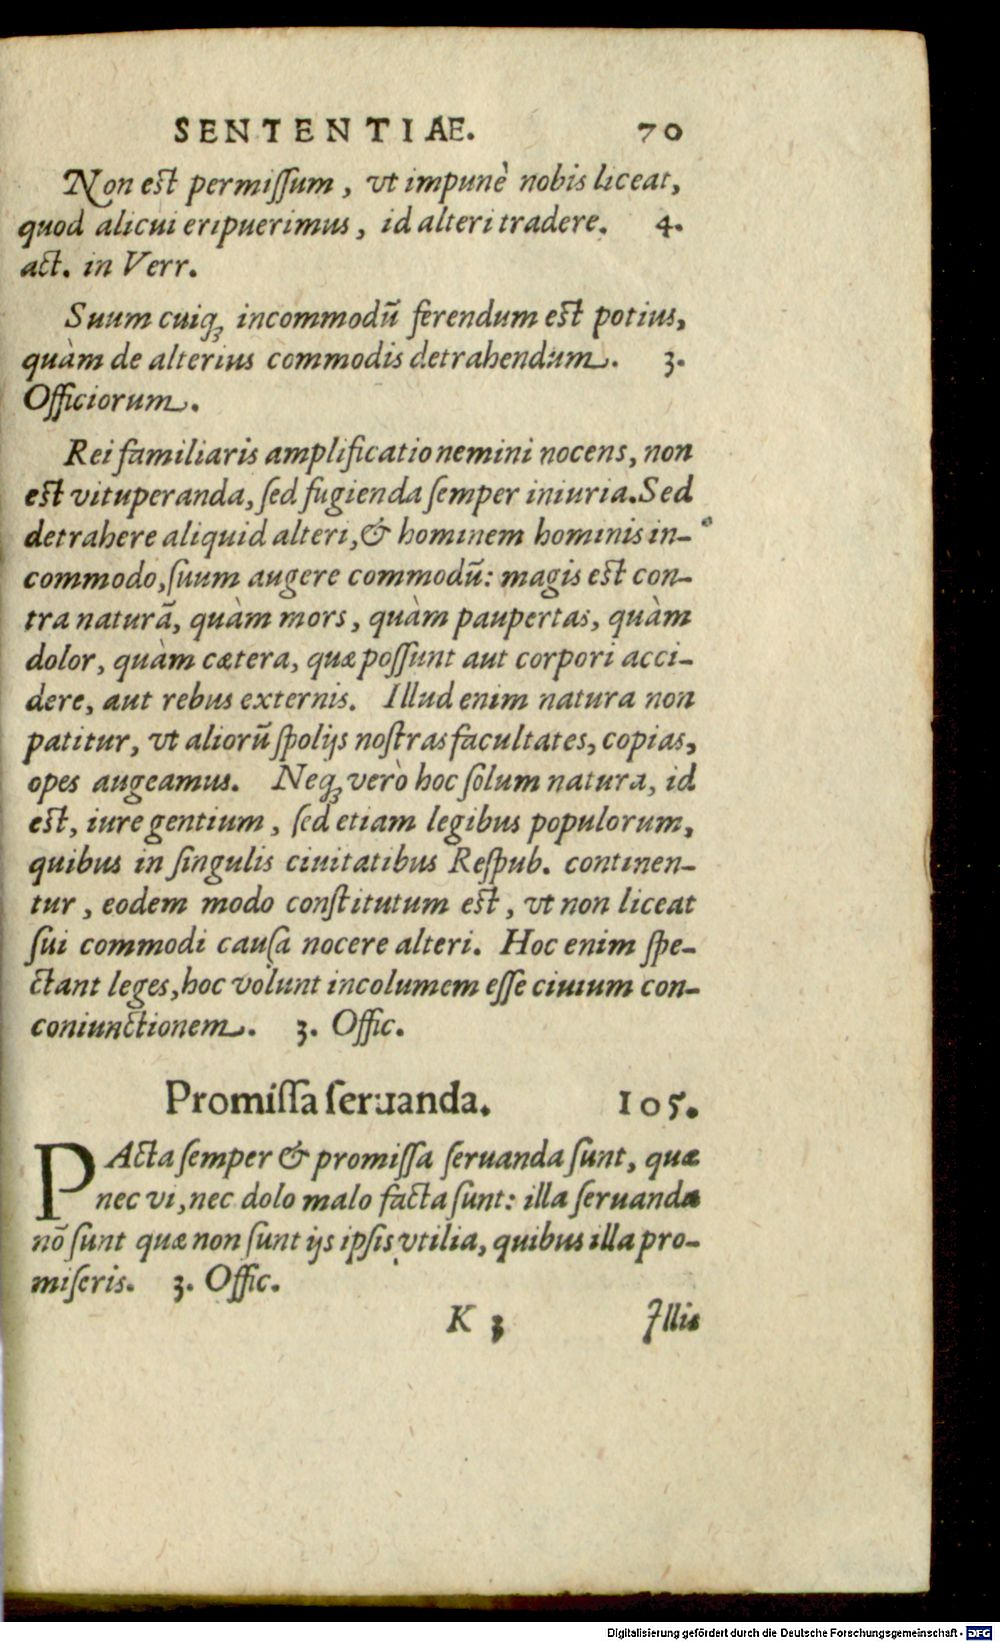 SENTENTIAE. 70
Non est permiſſum, vt impunè nobis liceat,
quod alicui eripuerimus, id alteri tradere. 4.
act. in Verr.
Suum cuiqꝫ incommodũ ferendum est potius,
quàm de alterius commodis detrahendum. 3.
Officiorum.
Rei familiaris amplificatio nemini nocens, non
est vituperanda, ſed fugienda ſemper iniuria. Sed
detrahere aliquid alteri, & hominem hominis in-
commodo, ſuum augere commodũ: magis est con-
tra naturã, quàm mors, quàm paupertas, quàm
dolor, quàm cætera, quæ poſſunt aut corpori acci-
dere, aut rebus externis. Illud enim natura non
patitur, vt aliorũ ſpolijs noſtras facultates, copias,
opes augeamus. Neqꝫ verò hoc ſolum natura, id
est, iure gentium, ſed etiam legibus populorum,
quibus in ſingulis ciuitatibus Reſpub. continen-
tur, eodem modo conſtitutum est, vt non liceat
ſui commodi cauſa nocere alteri. Hoc enim ſpe-
ctant leges, hoc volunt incolumem eſſe ciuium con-
coniunctionem. 3. Offic.
Promiſſa ſeruanda. 105.
PActa ſemper & promiſſa ſeruanda ſunt, quæ
nec vi, nec dolo malo facta ſunt: illa ſeruanda
nõ ſunt quæ non ſunt ijs ipſis vtilia, quibus illa pro-
miſeris. 3. Offic.
K 3 Illis
Digitalisierung gefördert durch die Deutsche Forschungsgemeinschaft - DFG